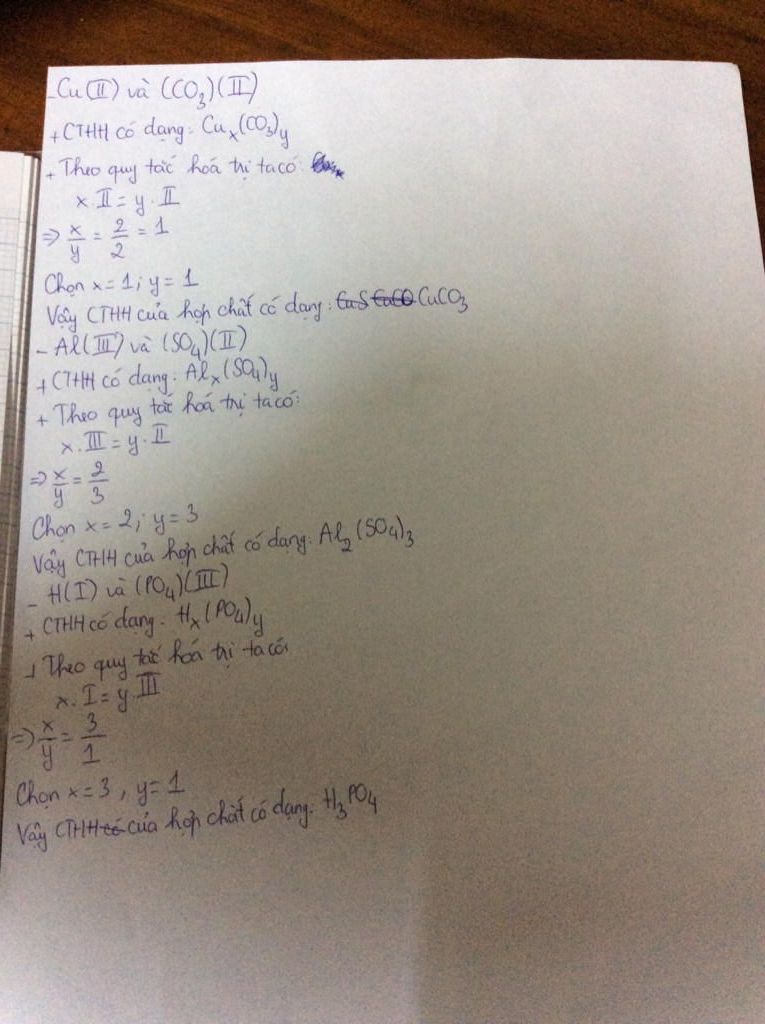 - Cu(II) và (CO₃)(II)
+ CTHH có dạng: Cuₓ(CO₃)y
+ Theo quy tắc hoá trị ta có:
x.II = y.II
⇒ x/y = 2/2 = 1
Chọn x = 1; y = 1
Vậy CTHH của hợp chất có dạng: CuS CuCO CuCO₃
- Al(III) và (SO₄)(II)
+ CTHH có dạng: Alₓ(SO₄)y
+ Theo quy tắc hoá trị ta có:
x.III = y.II
⇒ x/y = 2/3
Chọn x = 2; y = 3
Vậy CTHH của hợp chất có dạng: Al₂(SO₄)₃
- H(I) và (PO₄)(III)
+ CTHH có dạng: Hₓ(PO₄)y
+ Theo quy tắc hoá trị ta có:
x.I = y.III
⇒ x/y = 3/1
Chọn x = 3, y = 1
Vậy CTHH có của hợp chất có dạng: H₃PO₄